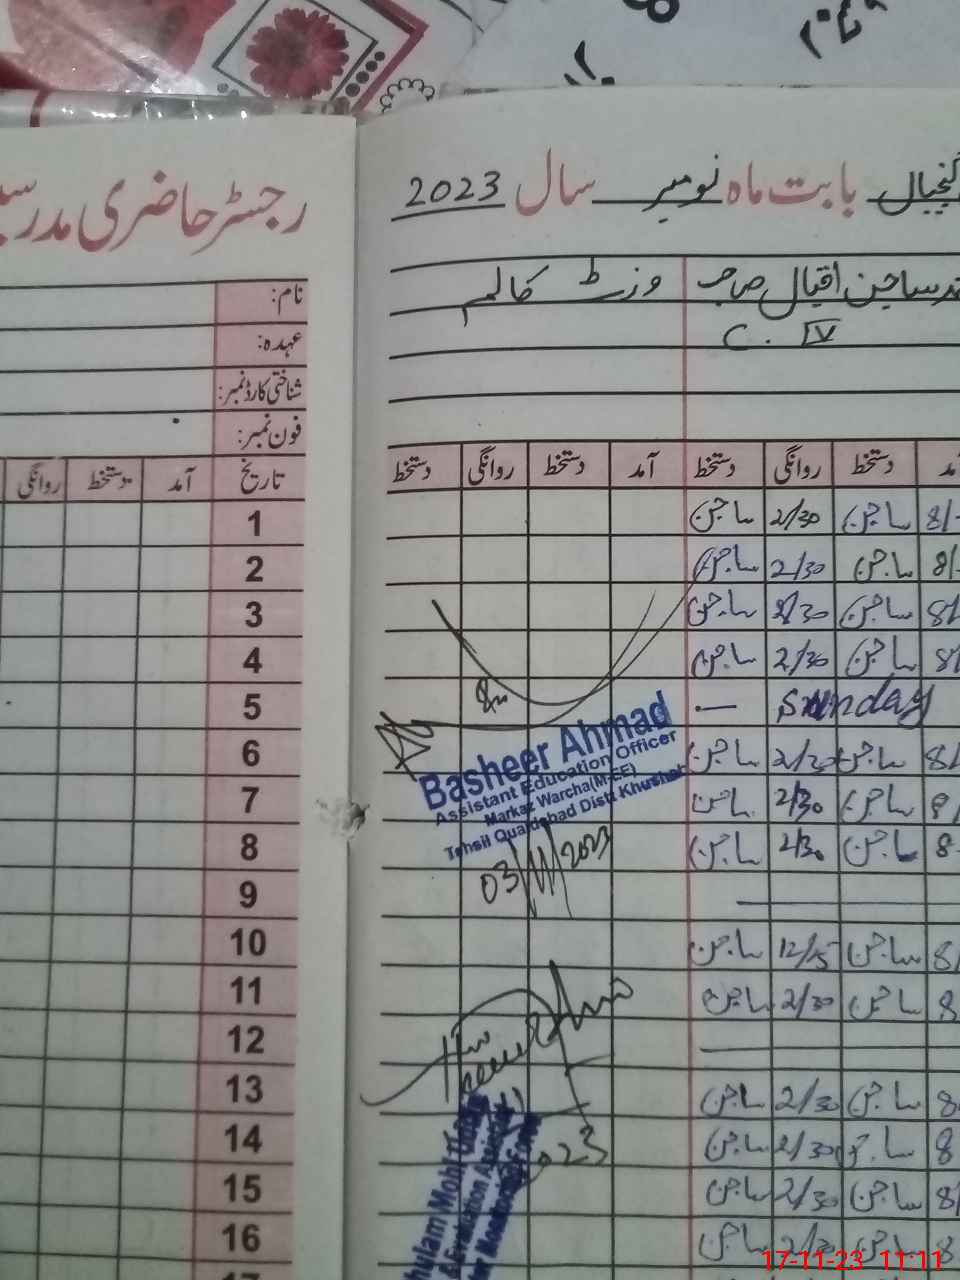 بابت ماہ نومبر سال 2023
رجسٹر حاضری
ساجن اقبال صاحب
وزٹ کالم
C. IV
نام:
عہدہ:
شناختی کارڈ نمبر:
فون نمبر:
دستخط روانگی دستخط آمد دستخط روانگی دستخط
تاریخ آمد دستخط روانگی
1 ساجن 2/30 ساجن
2 ساجن 2/30 ساجن
3 ساجن 2/30 ساجن
4 ساجن 2/30 ساجن
5 Sunday
6 ساجن 2/30 ساجن
7 ساجن 2/30 ساجن
8 ساجن 2/30 ساجن
9
10 ساجن 12/15 ساجن
11 ساجن 2/30 ساجن
12
13 ساجن 2/30 ساجن
14 ساجن 2/30 ساجن
15 ساجن 2/30 ساجن
16 ساجن 2/30 ساجن
Basheer Ahmad
Assistant Education Officer
Markaz Warcha(M-EE)
Tehsil Quaidabad Distt Khushab
03/11/2023
17-11-23 11:11